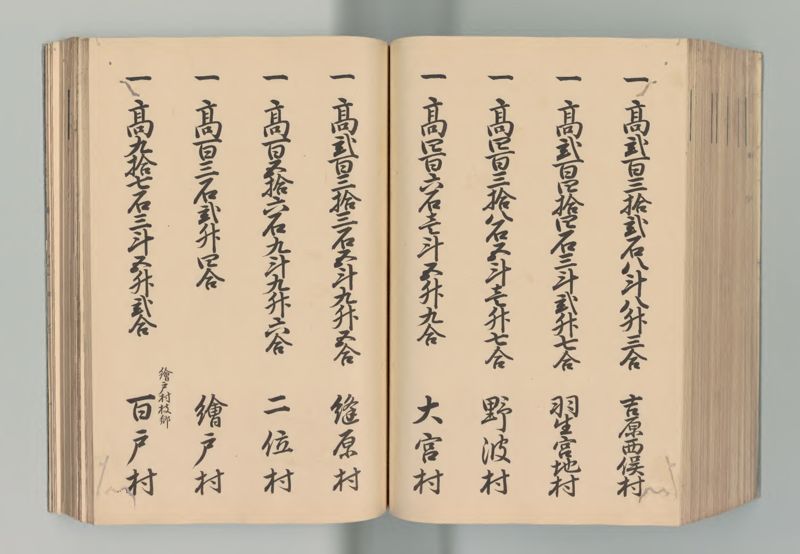 一 高弐百三拾弐石八斗八升三合 吉原西俣村
一 高弐百四拾四石三斗弐升七合 羽生宮地村
一 高四百三拾八石五斗壱升七合 野波村
一 高四百六石壱斗五升九合 大宮村
一 高弐百三拾三石五斗九升五合 縫原村
一 高百五拾六石九斗九升六合 二位村
一 高百三石弐升四合 繪戸村
繪戸村枝郷
一 高九拾七石三斗五升弐合 百戸村